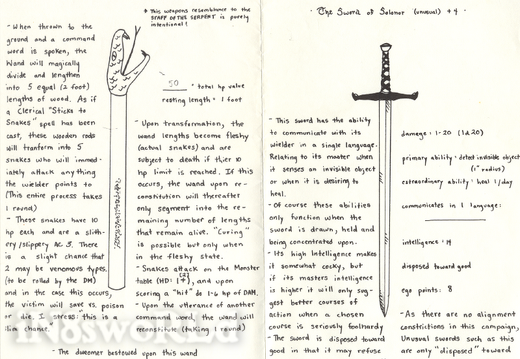 * This weapons resemblance to the
STAFF OF THE SERPENT is purely
intentional!
- When thrown to the
ground and a command
word is spoken, the
Wand will magically
divide and lengthen
into 5 equal (2 foot)
lengths of wood. As if
a Clerical "Sticks to
Snakes" spell has been
cast, these wooden rods
will tranform into 5
snakes who will immed-
iately attack anything
the wielder points to
(This entire process takes
1 round)
- These snakes have 10
hp each and are a slith-
ery/slippery AC 5. There
is a slight chance that
2 may be venomous types.
(to be rolled by the DM)
and in the case this occurs,
the victim will save vs. poison
or die. I stress: this is a
slim chance.
50 - total hp value
resting length - 1 foot
- Upon transformation, the
wand lengths become fleshy
(actual snakes) and are
subject to death if thier 10
hp limit is reached. If this
occurs, the wand upon re-
constitution will thereafter
only segment into the re-
maining number of lengths
that remain alive. "Curing"
is possible but only when
in the fleshy state.
- Snakes attack on the Monster
table (HD: ), and upon
scoring a "hit" do 1-6 hp of DAM.
- Upon the utterance of another
command word, the wand will
reconstitute (taking 1 round)
- The dweomer bestowed upon this wand
- The Sword of Selonor (unusual) +4 -
- This sword has the ability
to communicate with its
wielder in a single language.
Relating to its master when
it senses an invisible object
or when it is desiring to
heal.
- Of course these abilities
only function when the
sword is drawn, held and
being concentrated upon.
- Its high Intelligence makes
it somewhat cocky, but
if its masters intelligence
is higher it will only sug-
gest better courses of
action when a chosen
course is seriously foolhardy
- The sword is disposed toward
good in that it may refuse
damage: 1-20 (1d20)
primary ability - detect invisible object
(1" radius)
extraordinary ability - heal 1/day
communicates in 1 language:
intelligence: 14
disposed toward good
ego points: 8
- As there are no alignment
constrictions in this campaign,
Unusual swords such as this
are only "disposed" toward